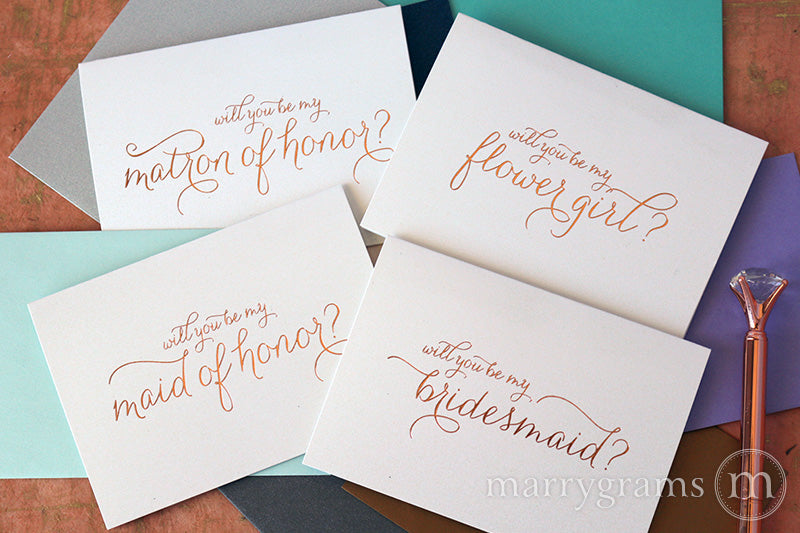 will you be my
matron of honor?
will you be my
flower girl?
will you be my
maid of honor?
will you be my
bridesmaid?
marrygrams m